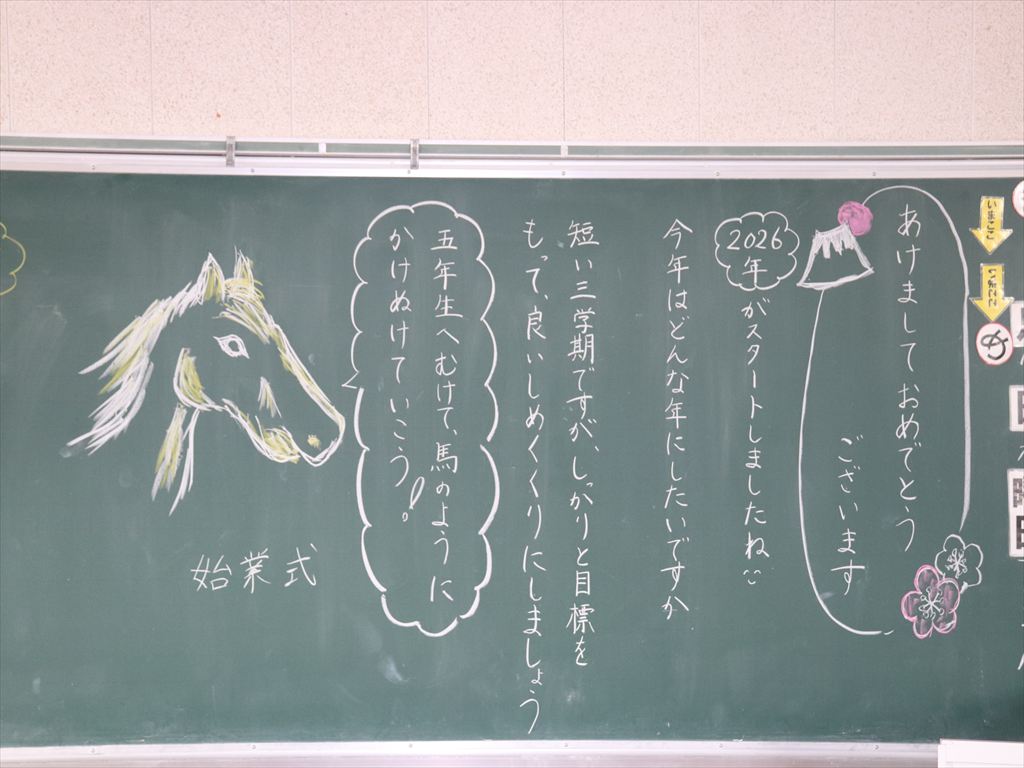 いまここ
め
あけましておめでとう
ございます
2026年がスタートしましたね
今年はどんな年にしたいですか
短い三学期ですが、しっかりと目標を
もって、良いしめくくりにしましょう
五年生へむけて、馬のように
かけぬけていこう!。
始業式